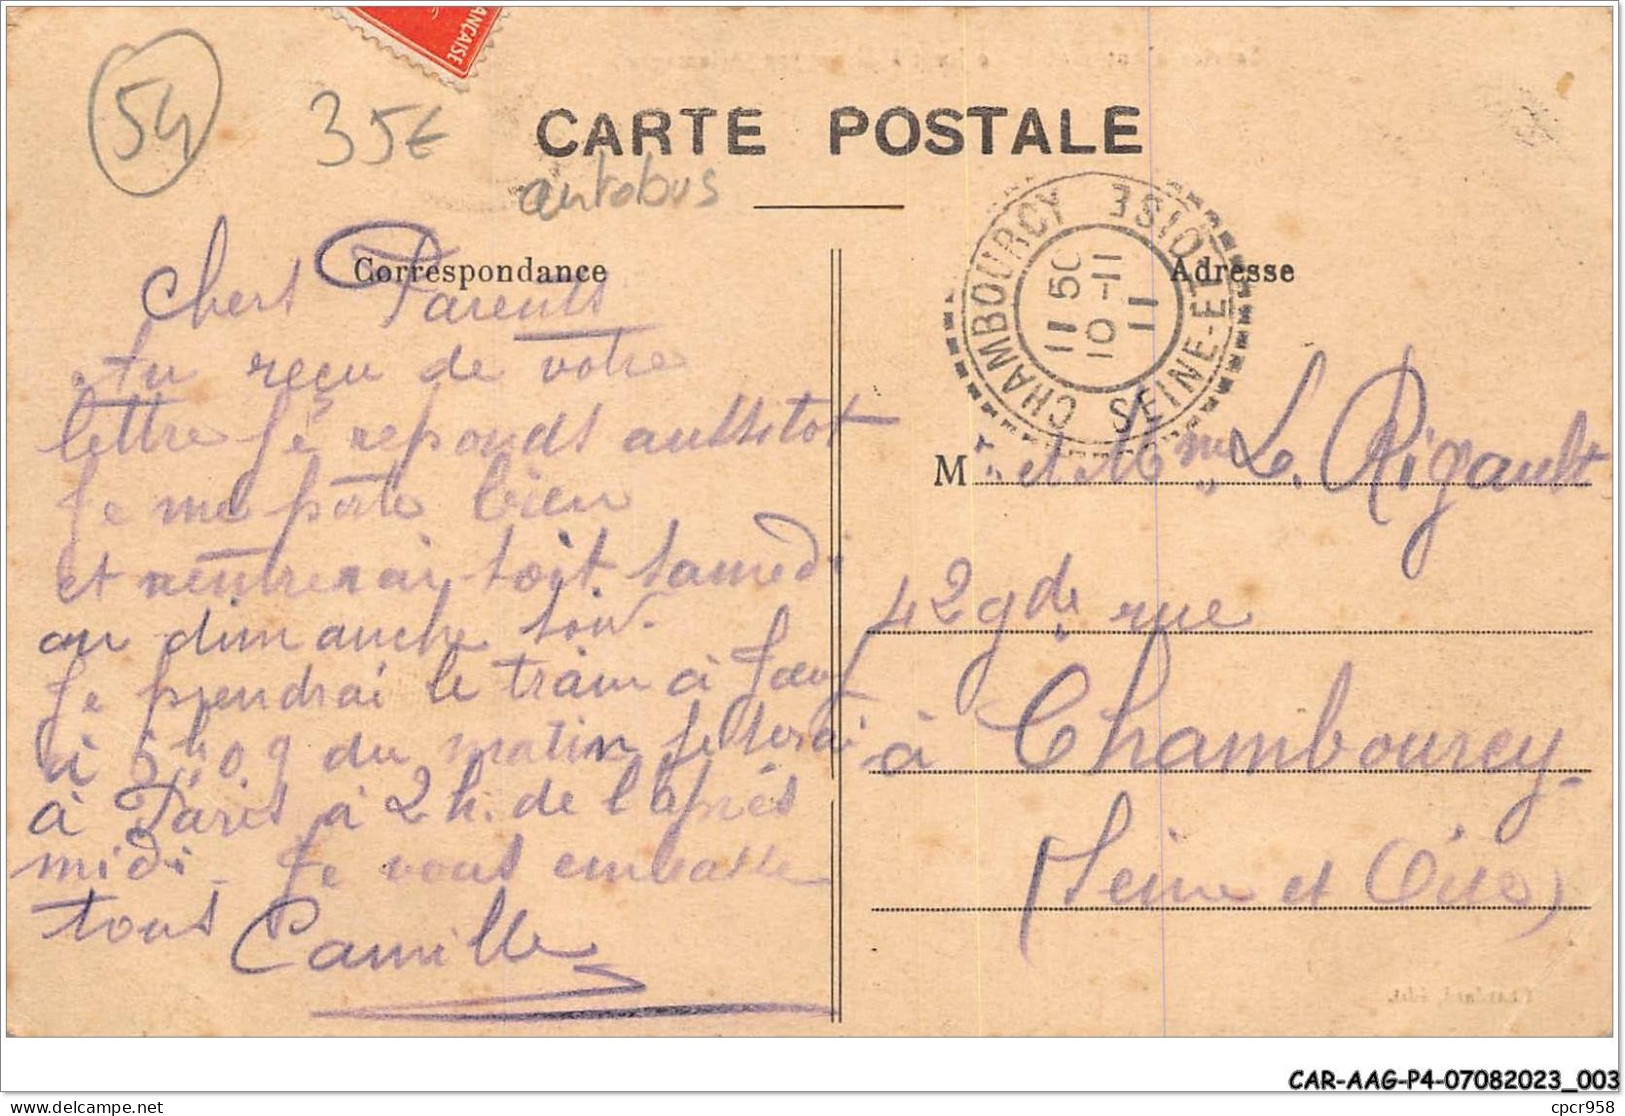 ÇAISE
54
35€
CARTE POSTALE
autobus
Correspondance
Chers Parents
Au reçu de votre
lettre je reponds aussitot
Je me porte bien
et rentrerai soit samedi
ou dimanche soir.
Je prendrai le train à Jœuf
à 5h09 du matin je serai
à Paris à 2h. de l'après
midi - Je vous embrasse
tous
Camille
CHAMBOURCY
SEINE-ET-OISE
11 50
10 -11
11
Adresse
M et Mme Le Rigault
42 gde rue
à Chambourcy
(Seine et Oise)
Chardard, édit.
CAR-AAG-P4-07082023_003
cpcr958